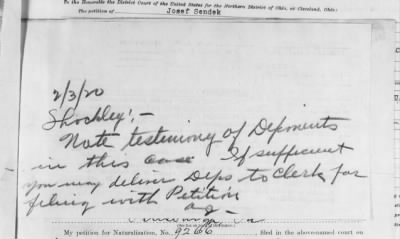 To the Honorable the District Court of the United States for the Northern District of Ohio, at Cleveland, Ohio:
The petition of Josef Sendek
2/3/20
Shockley:-
Note testimony of Deponents
in this case If sufficient
you may deliver Deps to Clerk for
filing with Petition
My petition for Naturalization, No. 9266, filed in the above-named court on